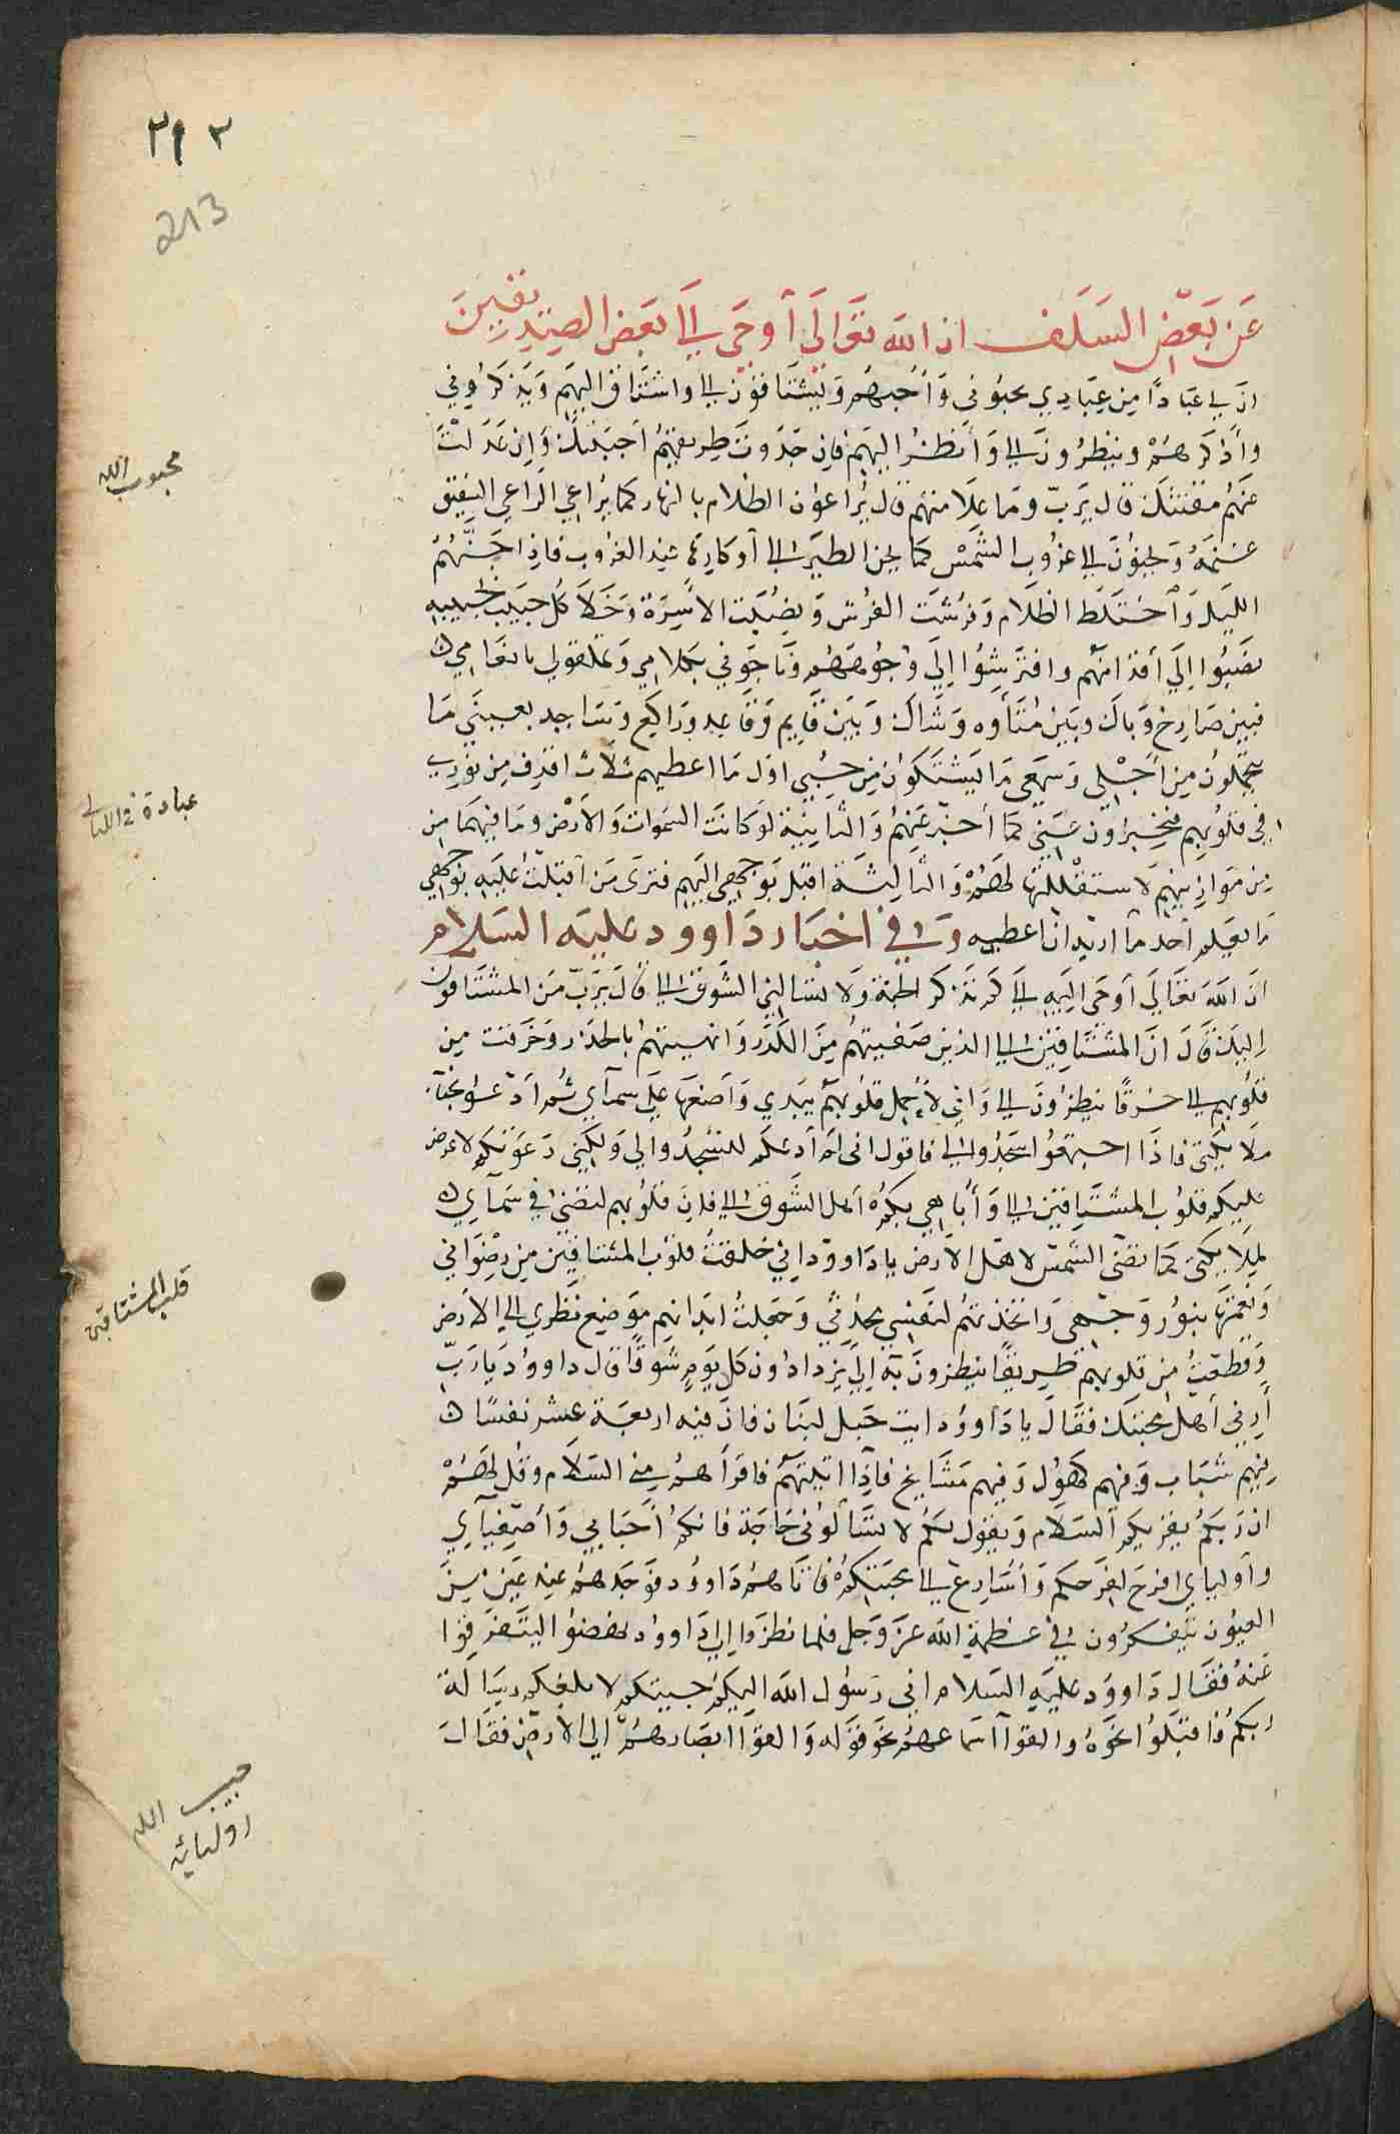 ٢١٣
213
عَن بَعضِ السَلَف ان الله تعَالَى أوحَى إلى بَعض الصِدِيقينَ
انّ لي عبَادًا مِن عِبَادِي يحبوُنى وَأحُبهُم وَيَشتَاقوُن الي واشتَاق اليهَم وَيَذكرُوني
وأذكرهُمْ وينظِرُونَ الي وَأنظُر اليهَم فان حَذَوتَ طِريقتهُم احبَبتك وَإن عَدَلتَ
عنهُم مقتتك قال يَرَبّ ومَا علَامتهُم قال يُرَاعوُن الظلام بالنهار كما يُرَاعي الرَاعي الشفيق
غنمَهُ وَيحنوُنَ الي غرُوب الشَمسْ كما يحن الطيَر الى أوكارِهَا عند الغرُوب فاذا جَنَّهُمُ
الليَل وَأختلَط الظلَام وَفرُشَت الفرُش وَنصُبَت الاسَِرَة وَخَلَا كُل حبَيَب بحبيبهِ
نصَبُوا اِلَي أقدَامَهُم وافترَشِوُا اِلَي وُجُوهَهُم وَنَاجَوني بكلامِي وَتملقولى بانعَامِي
فبين صَارِخ وَبَاك وبَين مُتَأوِه وَشَاك وَبَين قَايم وَقَاعِد وَرَاكِع وَسَاجد بعَينيَ مَا
يتحَمَلوُن مِن أجْلي وَسَمعَي مَا يَشتَكوُن مِن حُبّي اوَل مَا اعطيهم ثلَاث اقذِف مِن نورِي
في قلُوبِهِم فيُخبِرُون عَنّي كمَا أخبِر عَنهُم وَالثانِيَة لَو كانت السَموات وَالأرَضْ ومَا فيهمَا مِن
مِن مَوَازِينهِم لاستقْلَلتهَا لهَُمْ وَالثالِثَة اقبِل بوَجهِي اليَهِم فترَى مَن أقبَلتُ عليَهِ بوَجهي
مَا يَعلم أحَد مَا اريد ان اعطيه وَفي اخبَار دَاوود عليَه السَلَام
انَ اللهَ تعَالَي أوحَى اليَهِ الي كم تَذكر الجَنة وَلا تسَالني الشَوق الي قالَ يَرَبّ مَن المشتَاقون
اليَك قَالَ انَّ المشتَاقِين الي الذين صَفيتهُم مِنَ الكَدَر وَانبهتهُم بالحذَر وَخَرَقت مِن
قلُوبهم الي خرقًا ينظِرُونَ الي وَاني لأَحمِل قلوُبهُم بيَدي وَأضعَهَا علَي سمآي ثُم أدعُوا نجبآء
ملَايكتي فاذَا اجتمَعُوا سَجَدُوا الي فاقول اني لَم أدعكم لتسَجدُوا لي وَلكني دَعَوتكم لاعرض
عليَكم قلوُب المشتَاقِين الي وَأبَاهي بكمُ اهل الشَوق الي فاِنَ قلوُبهم لتضئ في سمَآي
لملَايكتي كمَا تضئ الشَمس لاهل الأرَض يا دَاوود اِني خلَقتُ قلوُب المشتاقين مِن رِضوَاني
وَنعمَتهَا بنوُر وَجهي وَاتخَذتهُم لنفَسِي محُدِثي وَجعَلتُ ابَدانهُم موَضِع نَظَري الي الأرَض
وَقطعَتُ مِن قلوبهم طَرِيقًا ينظرُونَ بِهِ اِلي يَزدادوُن كل يوَم شَوقًا قال داووُد يَا رَبّ
أرِني أهل محبتك فقالَ يا دَاووُد ايت جَبَل لبنَان فان فيه اربعَة عشر نفسًا
فيهِم شَبَاب وَفيهم كهوُل وَفيهم مَشَايخ فاذا اتيَتهُم فاقرَأهُم مني السَلَام وَقل لهَُمْ
ان رَبكمُ يقرِيكمُ السَلَام وَيقول لكم لا تسَألوني حَاجَة فانكمُ أحبَابي وَأصفيَآي
وأوليَاي افرَح لفرَحكم وَأسَارِع الي محبَتكمُ فاتَاهُم دَاووُد فوَجَدهُم عند عَين مِنَ
العيُون يتفَكرُون في عظمَةِ الله عزّ وَجَل فلما نظرُوا اِلي دَاووُد نهضوُا ليتَفرَقوا
عَنهُ فقال دَاووُد عليَهِ السَلام اني رَسُول الله اليَكمُ جيتكم لابلغكم رسَالة
ربكمُ فاقبَلوُا نحوَهُ والقوا أسمَاعهُم نحو قوَله وَالقوا ابصَارهُم اِلي الأرض فقالَ
محبوب الله
عبادة فى الليالى
قلب المشتاقين
حبيب الله
اوليائه